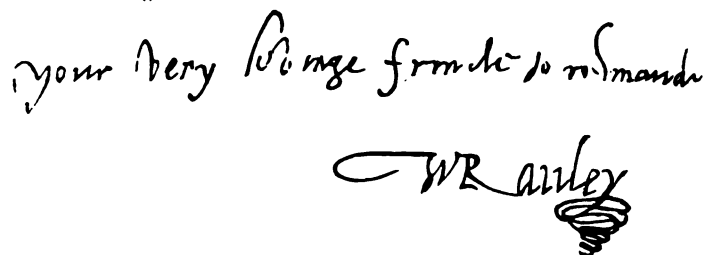 your very lovinge frinde to cõmande
WRauley